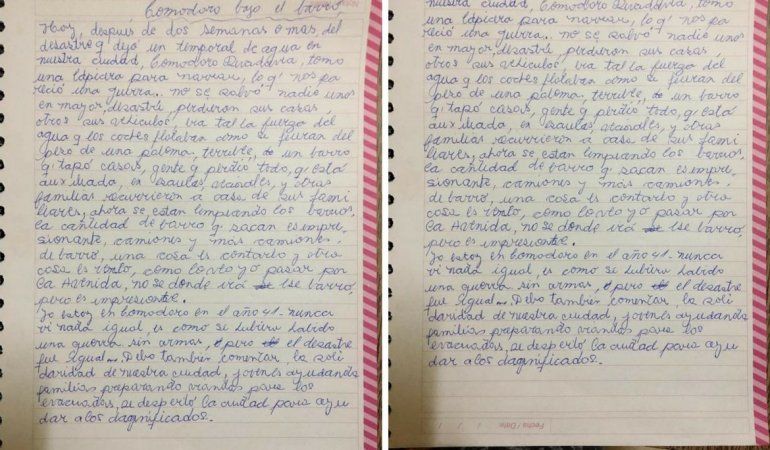 Comodoro bajo el barro
Hoy, después de dos semanas o mas, del
desastre q' dejó un temporal de agua en
nuestra ciudad, Comodoro Rivadavia, tomo
una lapicera para narrar, lo q' nos pa
reció una guerra.. no se salvó nadie unos
en mayor, desastre, perdieron sus casas,
otros sus vehículos, era tal la fuerza del
agua q los coches flotaban como si fueran del
peso de una paloma, terrible, de un barro
q' tapó casas, gente q' perdió todo, q' está
auxiliada, en escuelas, y otras
familias recurrieron a casa de sus fami
liares, ahora se estan limpiando los barrios,
la cantidad de barro q sacan es impre
sionante, camiones y más camiones,
de barro, una cosa es contarlo y otra
cosa es verlo, como lo veo yo pasar por
la no se donde irá ese barro,
pero es impresionante.
Yo estoy en Comodoro en el año 41. nunca
vi nada igual, es como se hubiera habido
una guerra sin armas, pero el desastre
fue igual... Debo tambien comentar, la soli
daridad de nuestra ciudad, jovenes ayudando,
familias preparando viandas para los
evacuados, se despertó la ciudad para ayu
dar a los dagnificados.
nuestra ciudad, Comodoro Rivadavia, tomo
una lapicera para narrar, lo q' nos pa
reció una guerra.. no se salvó nadie unos
en mayor, desastre, perdieron sus casas,
otros sus vehículos, era tal la fuerza del
agua q los coches flotaban como si fueran del
peso de una paloma, terrible, de un barro
q' tapó casas, gente q' perdió todo, q' está
auxiliada, en escuelas, y otras
familias recurrieron a casa de sus fami
liares, ahora se estan limpiando los barrios,
la cantidad de barro q sacan es impre
sionante, camiones y más camiones,
de barro, una cosa es contarlo y otra
cosa es verlo, como lo veo yo pasar por
la no se donde irá ese barro,
pero es impresionante.
Yo estoy en Comodoro en el año 41. nunca
vi nada igual, es como se hubiera habido
una guerra sin armas, pero el desastre
fue igual... Debo tambien comentar, la soli
daridad de nuestra ciudad, jovenes ayudando,
familias preparando viandas para los
evacuados, se despertó la ciudad para ayu
dar a los dagnificados.
Fecha/Date: